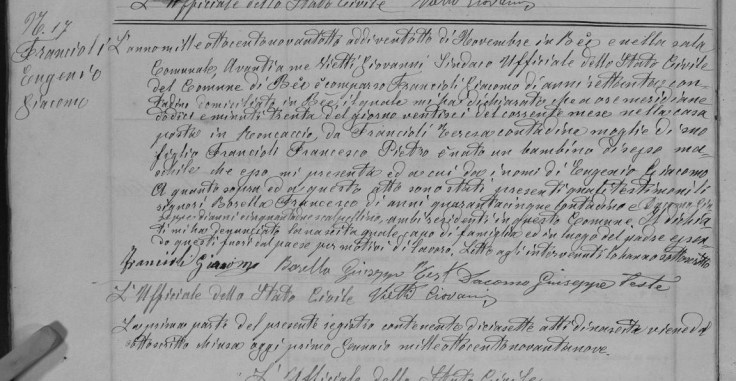 L'Uffiziale dello Stato Civile Vietti Giovanni
N. 17
Francioli
Eugenio
Giacomo
L'anno milleottocentonovantotto addi ventotto di Novembre in Bèe e nella sala
Comunale, Avanti a me Vietti Giovanni Sindaco Uffiziale dello Stato Civile
del Comune di Bèe è comparso Francioli Giacomo di anni settanta, con-
tadino domiciliato in Bèe, il quale mi ha dichiarato che a ore meridiane
dodici e minuti trenta del giorno ventisei del corrente mese nella casa
posta in Roncaccio, da Francioli Teresa contadina moglie di suo
figlio Francioli Francesco Pietro è nato un bambino di sesso ma-
schile che esso mi presenta ed a cui dà i nomi di Eugenio Giacomo
A quanto sopra ed a questo atto sono stati presenti quali testimoni li
signori Borella Francesco di anni quarantacinque contadino e Giacomo Giu-
seppe di anni cinquantadue scalpellino, ambi residenti in questo Comune. Il dichia-
rante mi ha denunciato la nascita quale capo di famiglia ed in luogo del padre essen-
do questi fuori del paese per motivi di lavoro. Letto agli intervenuti lo hanno sottoscritto
Francioli Giacomo Borella Giuseppe Test. Giacomo Giuseppe Teste
L'Uffiziale dello Stato Civile Vietti Giovanni
La prima parte del presente registro contenente diciasette atti di nascita viene da
sottoscritto chiusa oggi primo Gennaio milleottocentonovantanove.
L'Uffiziale dello Stato Civile